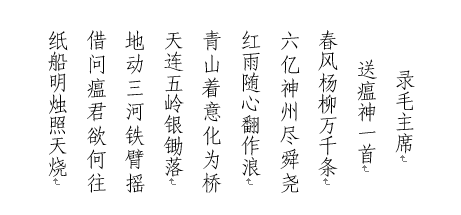 录毛主席
送瘟神一首
春风杨柳万千条
六亿神州尽舜尧
红雨随心翻作浪
青山着意化为桥
天连五岭银锄落
地动三河铁臂摇
借问瘟君欲何往
纸船明烛照天烧